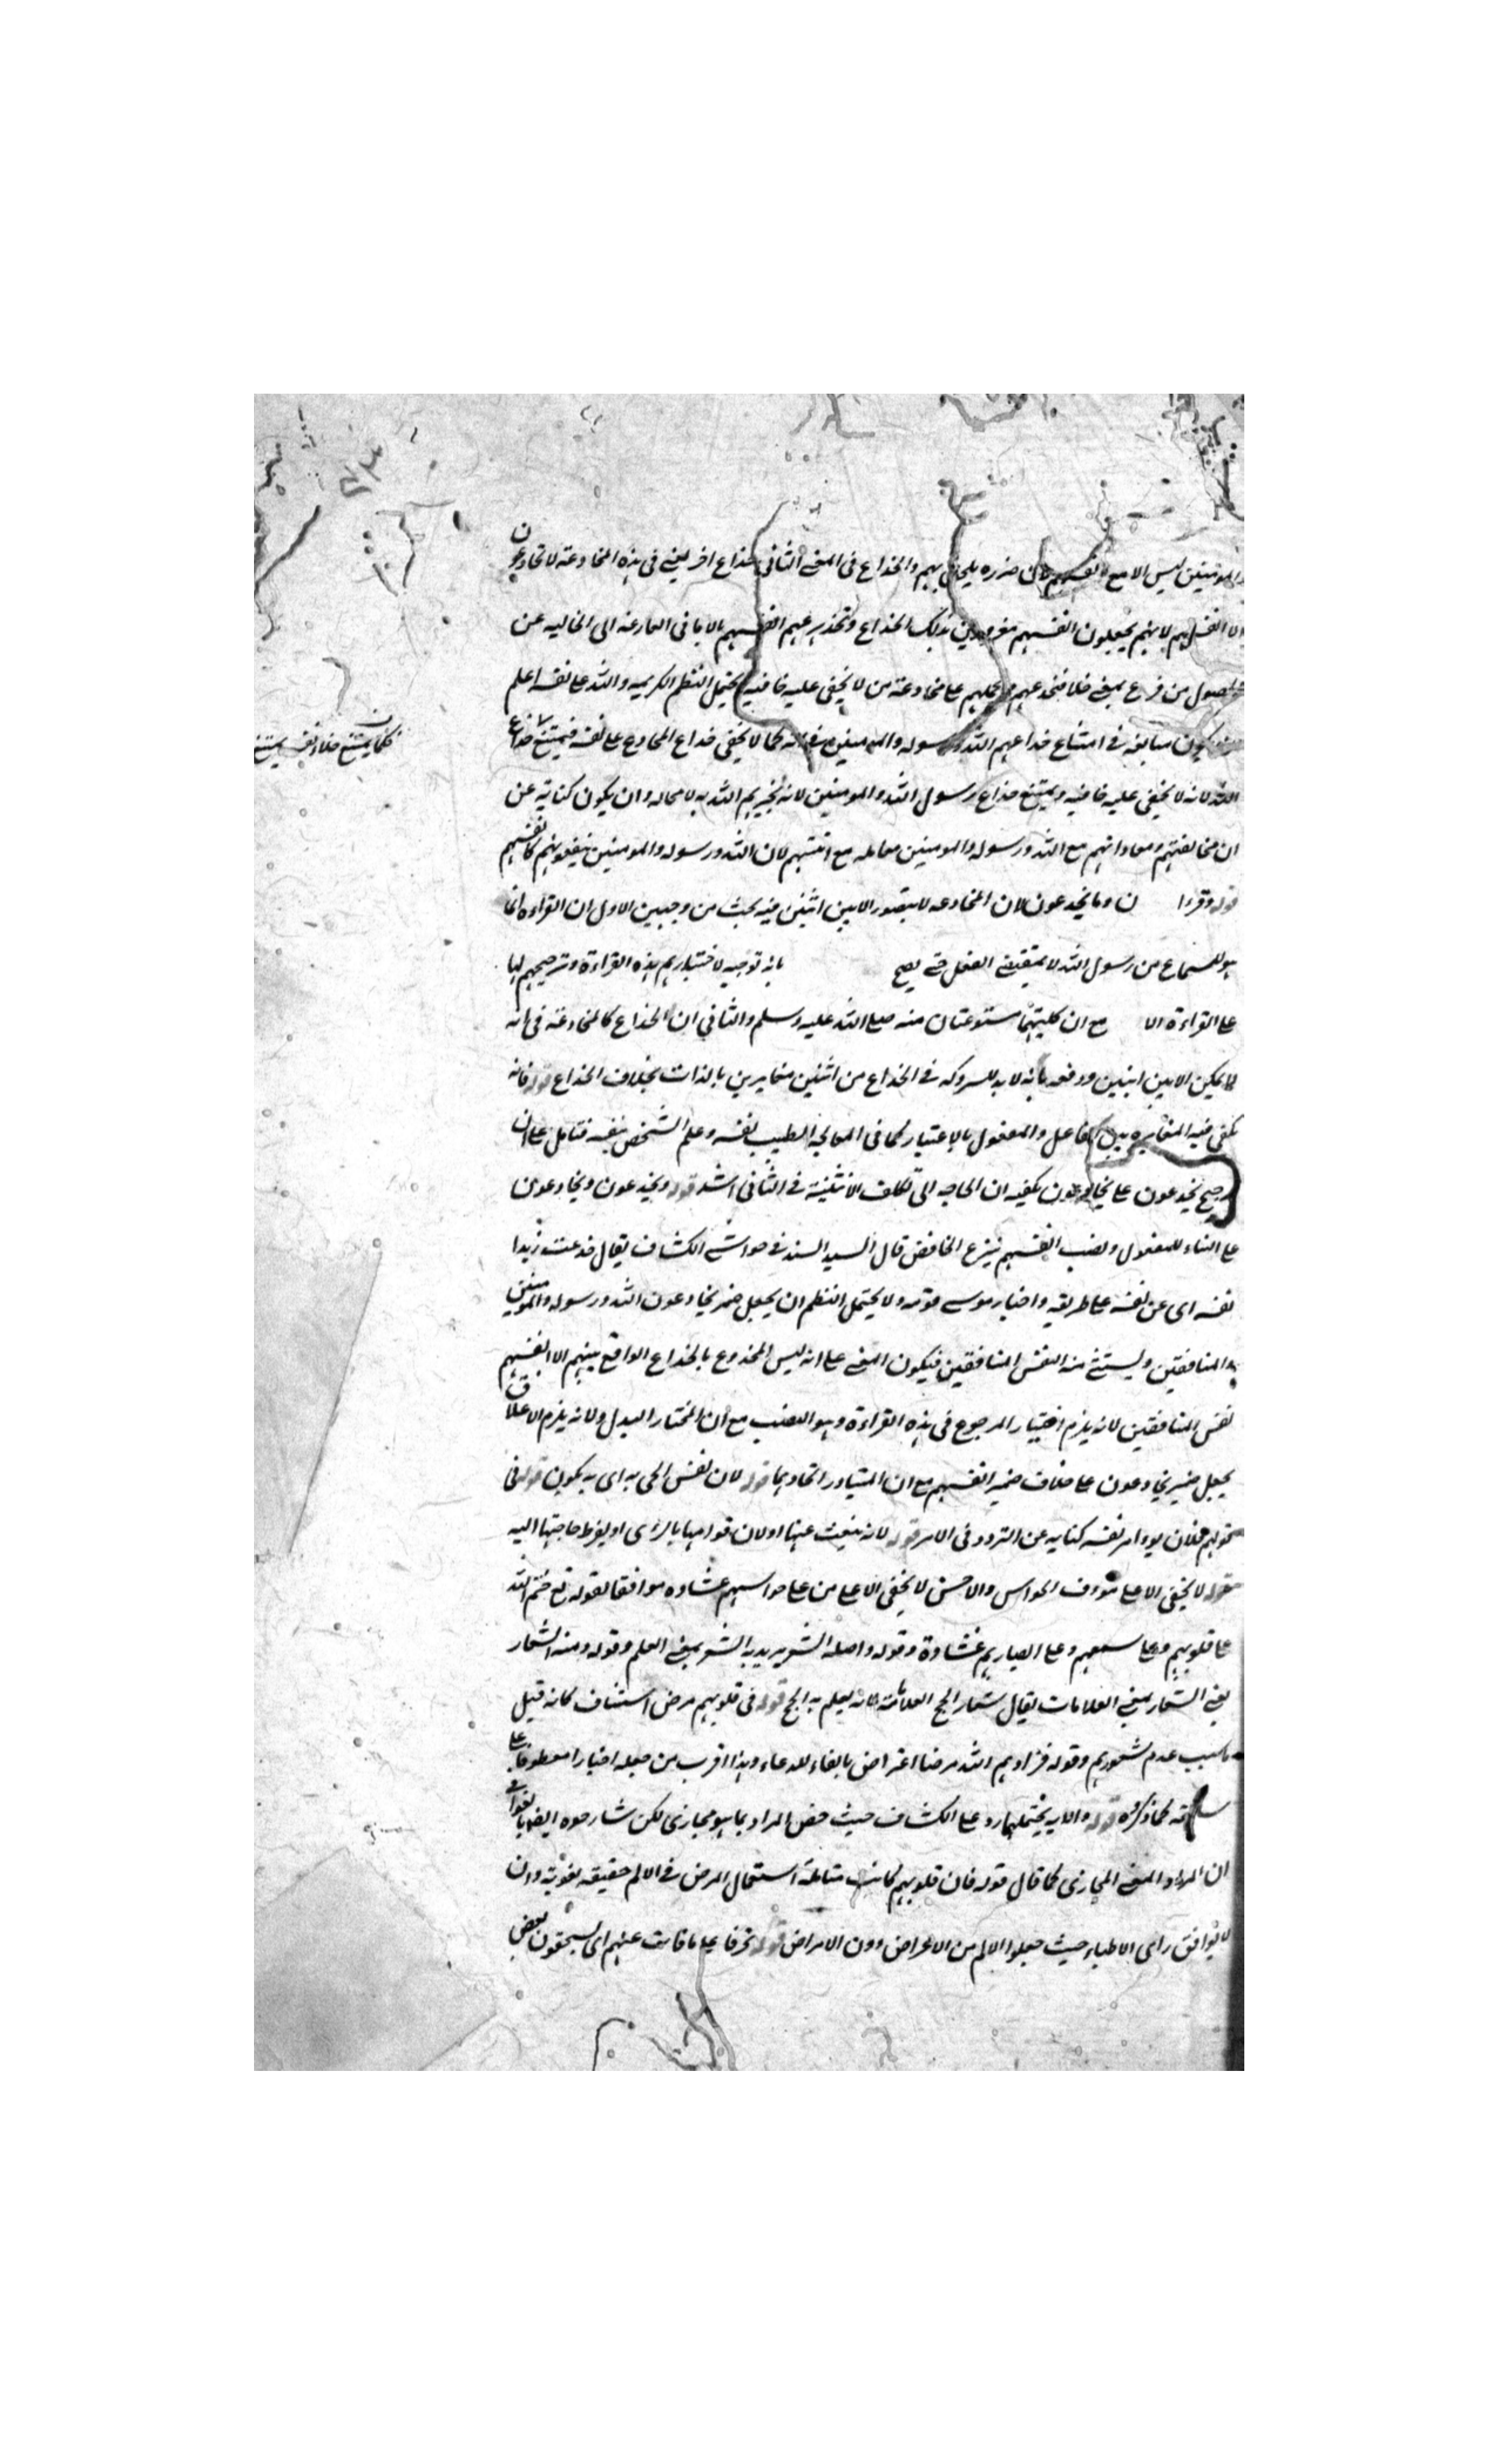 والمومنين ليس الا مع انفسهم لان ضرره يلحق بهم والخداع فى المعنى الثانى خداع اخر يعنى فى هذه المخادعة لا يخادعون
الا انفسهم لانهم يجعلون انفسهم مغرورين بذلك الخداع وتخدير عهم انفسهم بالامانى الفارغه الى الخاليه عن
من فرع بمعنى خلا فتخدعهم وتحملهم على مخادعة من لا يخفى عليه خافيه يحتمل النظم الكريم والله على نفسه اعلم
يكون مبالغه فى امتناع خداعهم الله ورسوله والمومنين فانه كما لا يخفى خداع المخادع على نفسه فيمتنع خداع
الله لانه لا يخفى عليه خافيه ويمتنع خداع رسول الله والمومنين لانه يخبرهم الله به لا محاله وان يكون كناية عن
ان مخالفتهم ومعاداتهم مع الله ورسوله والمومنين معامله مع انفسهم لان الله ورسوله والمومنين ينفعونهم كانفسهم
قوله وقرا ن وما يخدعون لان المخادعه لا يتصور الا بين اثنين فيه بحث من وجهين الاول ان القراءه انما
هو للسماع من رسول الله لا بمقتضى العقل حتى يصح بانه توجيه لاختيارهم هذه القراءة وترجيحهم لها
على القراءة الا مع ان كليتهما مسموعتان منه صلى الله عليه وسلم والثانى ان الخداع كالمخادعة فى انه
لا يمكن الا بين اثنين ودفعه بانه لا بد للشركه فى الخداع من اثنين متغايرين بالذات بخلاف الخداع فانه
يكفى فيه المغايره بين الفاعل والمفعول بالاعتبار كما فى المعالجه الطبيب نفسه وعلم الشخص بنفسه فتامل على ان
ترجيح يخدعون على يخادعون يكفيه ان الحاجه الى تكلف الاثنينية فى الثانى اشد قوله ويخدعون ويخادعون
على البناء للمفعول ونصب انفسهم بنزع الخافض قال السيد السند فى حواشى الكشاف يقال خدعت زيدا
نفسه اى عن نفسه على طريقه واختار موسى قومه ولا يحتمل النظم ان يجعل ضمير يخادعون الله ورسوله والمومنين
والمنافقين ويستثنى منه انفس المنافقين فيكون المعنى على انه ليس المخدوع بالخداع الواقع بينهم الا انفسهم
نفس المنافقين لانه يلزم اختيار المرجوح فى هذه القراءة وهو النصب مع ان المختار البدل ولانه يلزم الاعلاق
يجعل ضمير يخادعون على خلاف ضمير انفسهم مع ان المتبادر اتحادهما قوله لان نفس الحى به اى به يكون قوله فى
قولهم فلان يوامر نفسه كنايه عن التردد فى الامر قوله لانه ينبعث عنها اولان قوامها بالراى او لفرط حاجتها اليه
قوله لا يخفى الا على مؤوف الحواس والاحسن لا يخفى الا على من على حواسهم غشاوه موافقا لقوله تع ختم الله
على قلوبهم وعلى سمعهم وعلى ابصارهم غشاوة وقوله واصله الشعر يريد به الشعر بمعنى العلم وقوله ومنه الشعار
يعنى الشعار بمعنى العلامات يقال شعار الحج العلامة لانه يعلم به الحج قوله فى قلوبهم مرض استئناف كانه قيل
ما سبب عدم شعورهم وقوله فزادهم الله مرضا اعتراض بالفاء للدعاء وهذا اقرب من جعله اخبارا معطوفا على
كما ذكروه قوله والايه يحتملهما رد على الكشاف حيث خص المراد بما هو مجازى لكن شارحوه ايضا بالغوا فى
ان المراد المعنى المجازى كما قال قوله فان قلوبهم كانت متالمة استعمال المرض فى الالم حقيقه لغوية وان
لا يوافق راى الاطباء حيث جعلوا الالم من الاعراض دون الامراض قوله تحرقا على ما فات عنهم اى يسحقون بعض